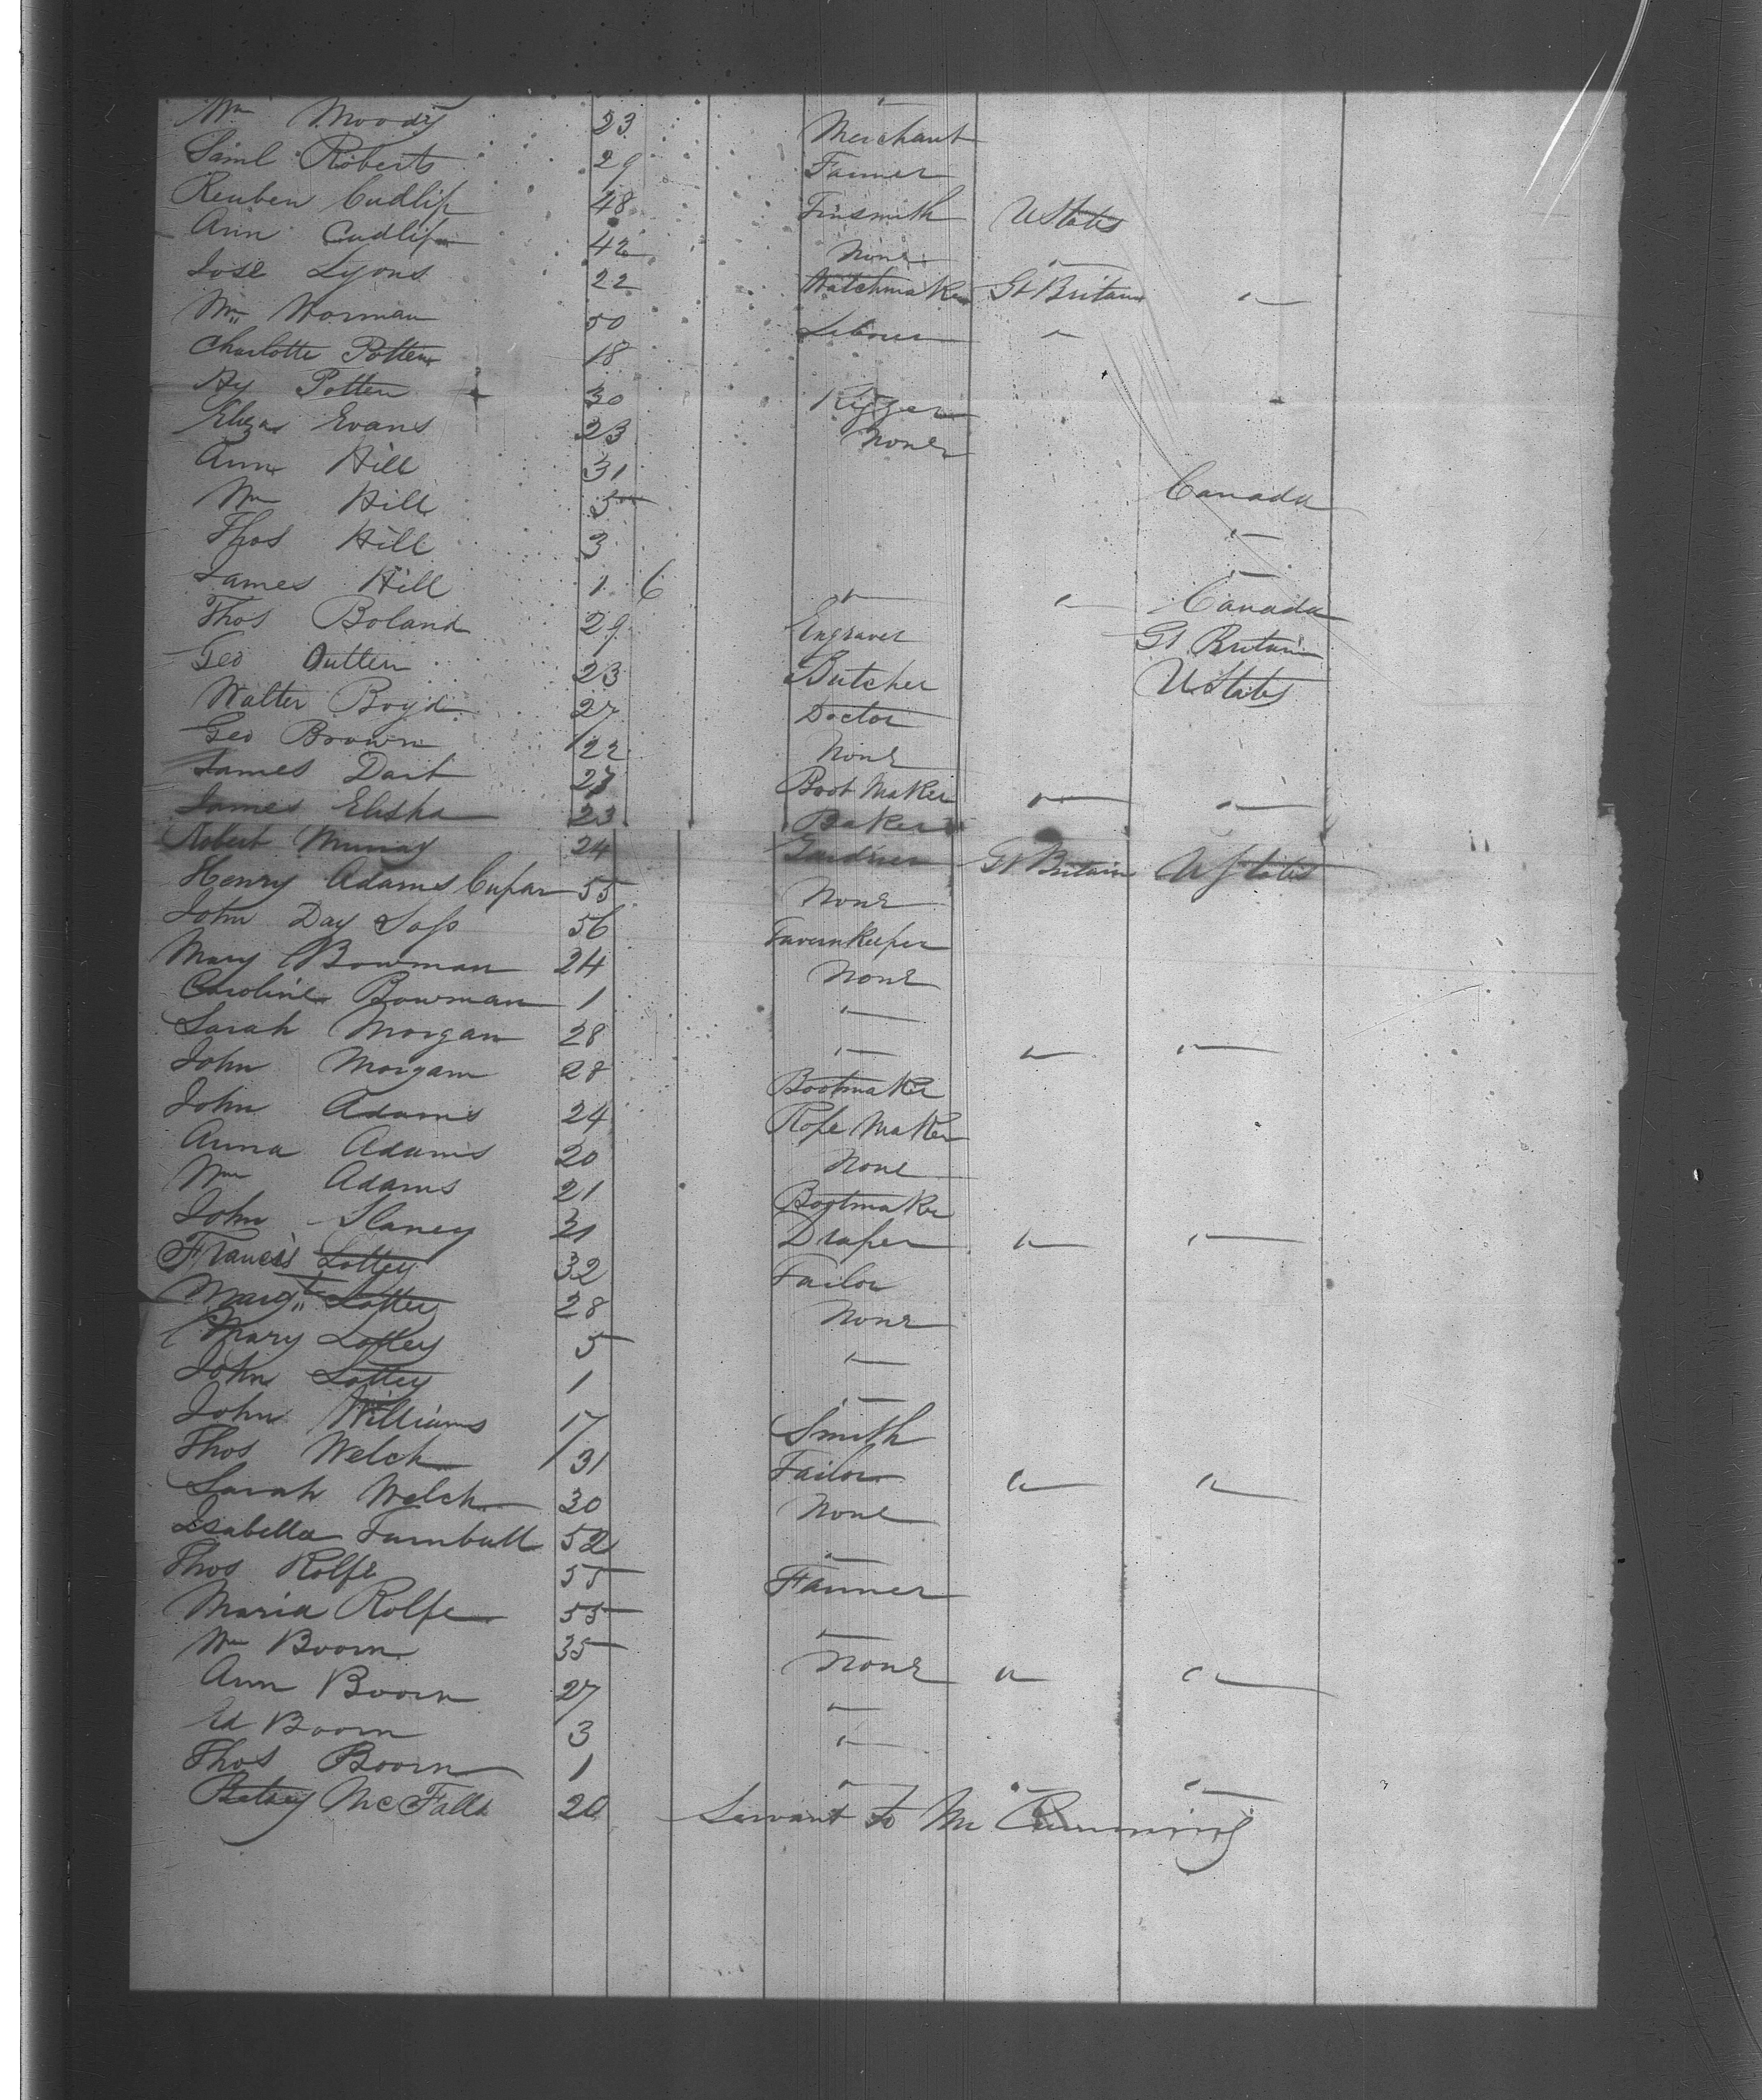 Wm Moody 23 Merchant
Saml Roberts 29 Farmer
Reuben Cudlip 48 Tinsmith U States
Ann Cudlip 42 None "
Jose Lyons 22 Watchmaker Gt Britain "
Wm Worman 50 Labour "
Charlotte Potter 18
Hy Potter 30 Rigger "
Eliza Evans 23 None
Ann Hill 31
Wm Hill 5 Canada
Thos Hill 3 "
James Hill 1 6 " " "
Thos Boland 29 Engraver Canada
Geo Outten 23 Butcher Gt Britain
Walter Boyd 27 Doctor U States
Geo Brown 22 None
James Dart 27 Boot Maker " "
James Elisha 23 Baker
Robert Murray 24 Gardner Gt Britain U States
Henry Adams Cupar 55 None
John Day 56 Tavernkeeper
Mary Bowman 24 None
Caroline Bowman 1 "
Sarah Morgan 28 " " "
John Morgan 28 Bootmaker
John Adams 24 Rope Maker
Anna Adams 20 None
Wm Adams 21 Bootmaker
John Slaney 31 Draper " "
Francis Lottey 32 Tailor
Margt Lottey 28 None
Mary Lottey 5 "
John Lottey 1 "
John Williams 17 Smith
Thos Welch 31 Tailor " "
Sarah Welch 30 None
Isabella Turnbull 52 "
Thos Rolfe 55 Farmer
Maria Rolfe 55 "
Wm Boorn 35 None " "
Ann Boorn 27 "
Ed Boorn 3 "
Thos Boorn 1 " " "
Betsey McFalls 20 Servant to Mr Cumming